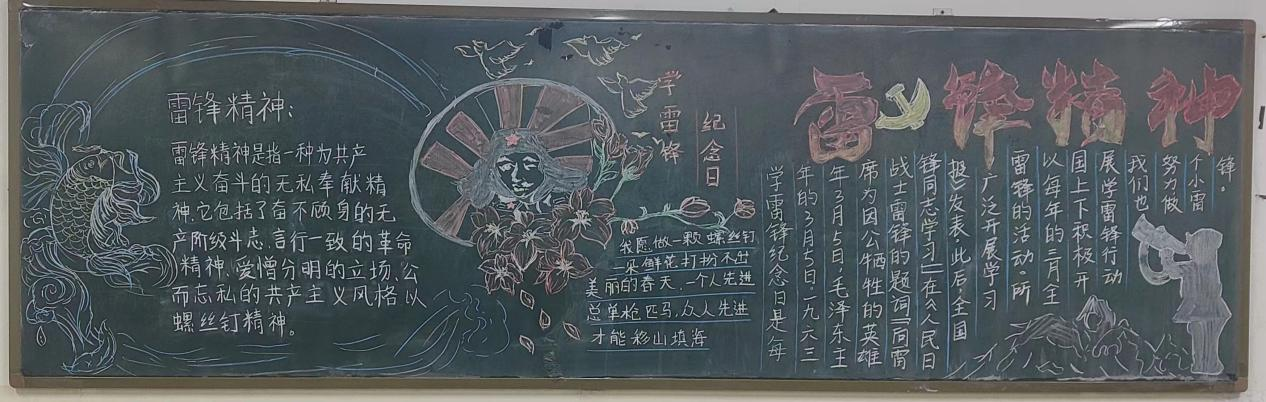 雷锋精神:
雷锋精神是指一种为共产
主义奋斗的无私奉献精
神,它包括了奋不顾身的无
产阶级斗志、言行一致的革命
精神、爱憎分明的立场、公
而忘私的共产主义风格以
螺丝钉精神。
学雷锋
纪念日
我愿做一颗螺丝钉
一朵鲜花打扮不出
美丽的春天,一个人先进
总单枪匹马,众人先进
才能移山填海
雷锋精神
学雷锋纪念日是每
年的3月5日,一九六三
年3月5日,毛泽东主
席为因公牺牲的英雄
战士雷锋的题词『向雷
锋同志学习』在《人民日
报》发表.此后,全国
广泛开展学习
雷锋的活动.所
以每年的三月全
国上下积极开
展学雷锋行动
我们也
努力做
个小雷
锋。